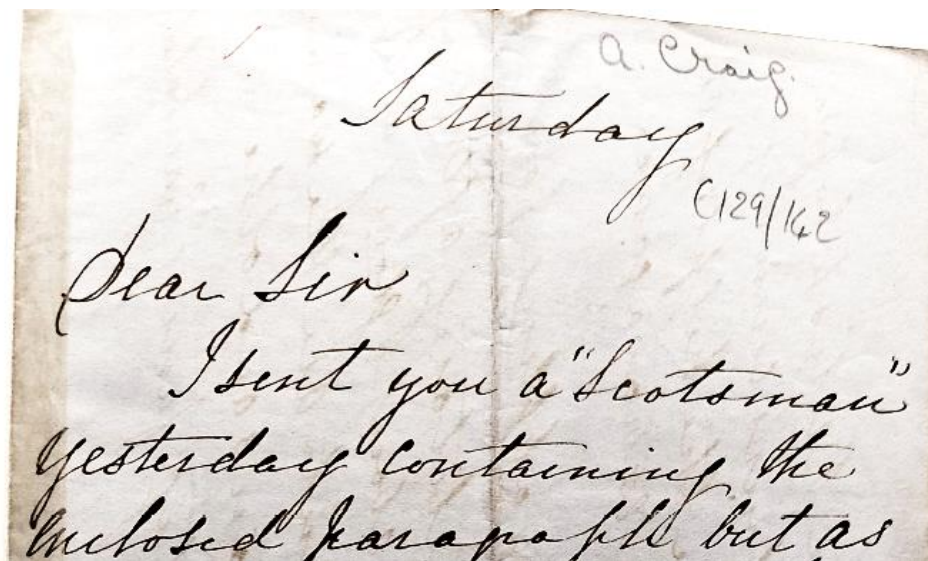 A. Craig.
Saturday
C129/142
Dear Sir
I sent you a "Scotsman"
yesterday containing the
enclosed paragraph but as